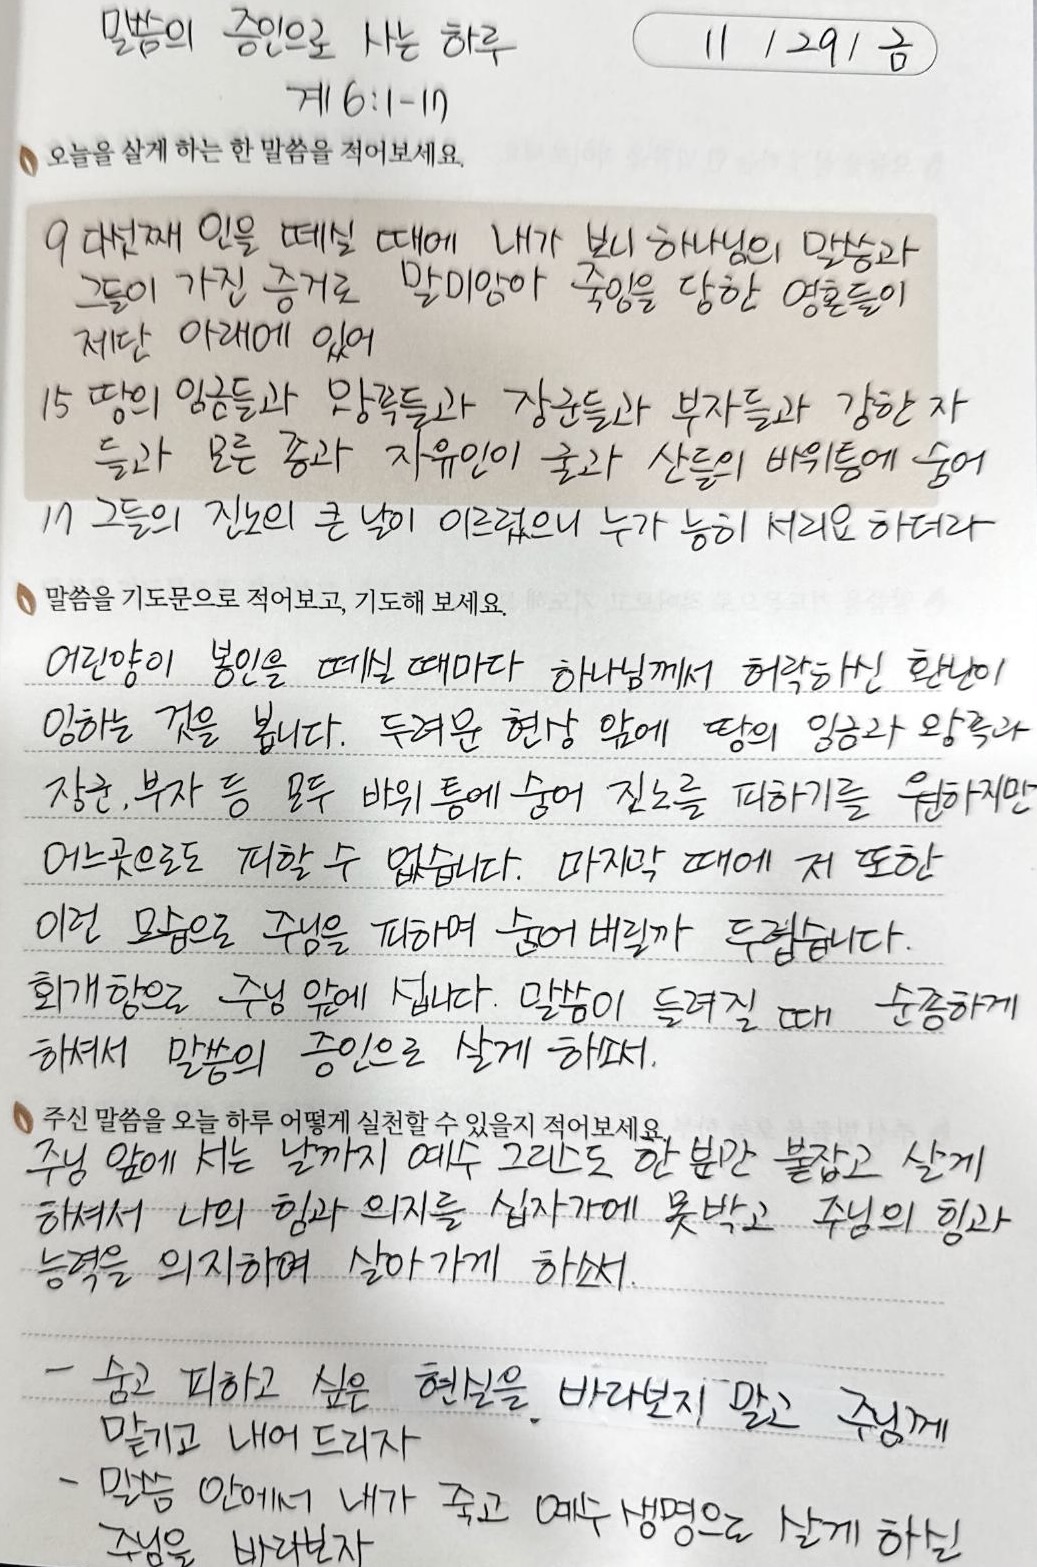 말씀의 증인으로 사는 하루
11 / 29 / 금
계 6:1-17
오늘을 살게 하는 한 말씀을 적어보세요.
9 다섯째 인을 떼실 때에 내가 보니 하나님의 말씀과
그들이 가진 증거로 말미암아 죽임을 당한 영혼들이
제단 아래에 있어
15 땅의 임금들과 왕족들과 장군들과 부자들과 강한 자
들과 모든 종과 자유인이 굴과 산들의 바위틈에 숨어
17 그들의 진노의 큰 날이 이르렀으니 누가 능히 서리요 하더라
말씀을 기도문으로 적어보고, 기도해 보세요.
어린양이 봉인을 떼실 때마다 하나님께서 허락하신 환난이
임하는 것을 봅니다. 두려운 현상 앞에 땅의 임금과 왕족과
장군, 부자 등 모두 바위 틈에 숨어 진노를 피하기를 원하지만
어느곳으로도 피할 수 없습니다. 마지막 때에 저 또한
이런 모습으로 주님을 피하며 숨어 버릴까 두렵습니다.
회개함으로 주님 앞에 섭니다. 말씀이 들려질 때 순종하게
하셔서 말씀의 증인으로 살게 하소서.
주신 말씀을 오늘 하루 어떻게 실천할 수 있을지 적어보세요.
주님 앞에 서는 날까지 예수 그리스도 한 분만 붙잡고 살게
하셔서 나의 힘과 의지를 십자가에 못박고 주님의 힘과
능력을 의지하며 살아가게 하소서.
- 숨고 피하고 싶은 현실을 바라보지 말고 주님께
맡기고 내어드리자
- 말씀 안에서 내가 죽고 예수 생명으로 살게 하실
주님을 바라보자